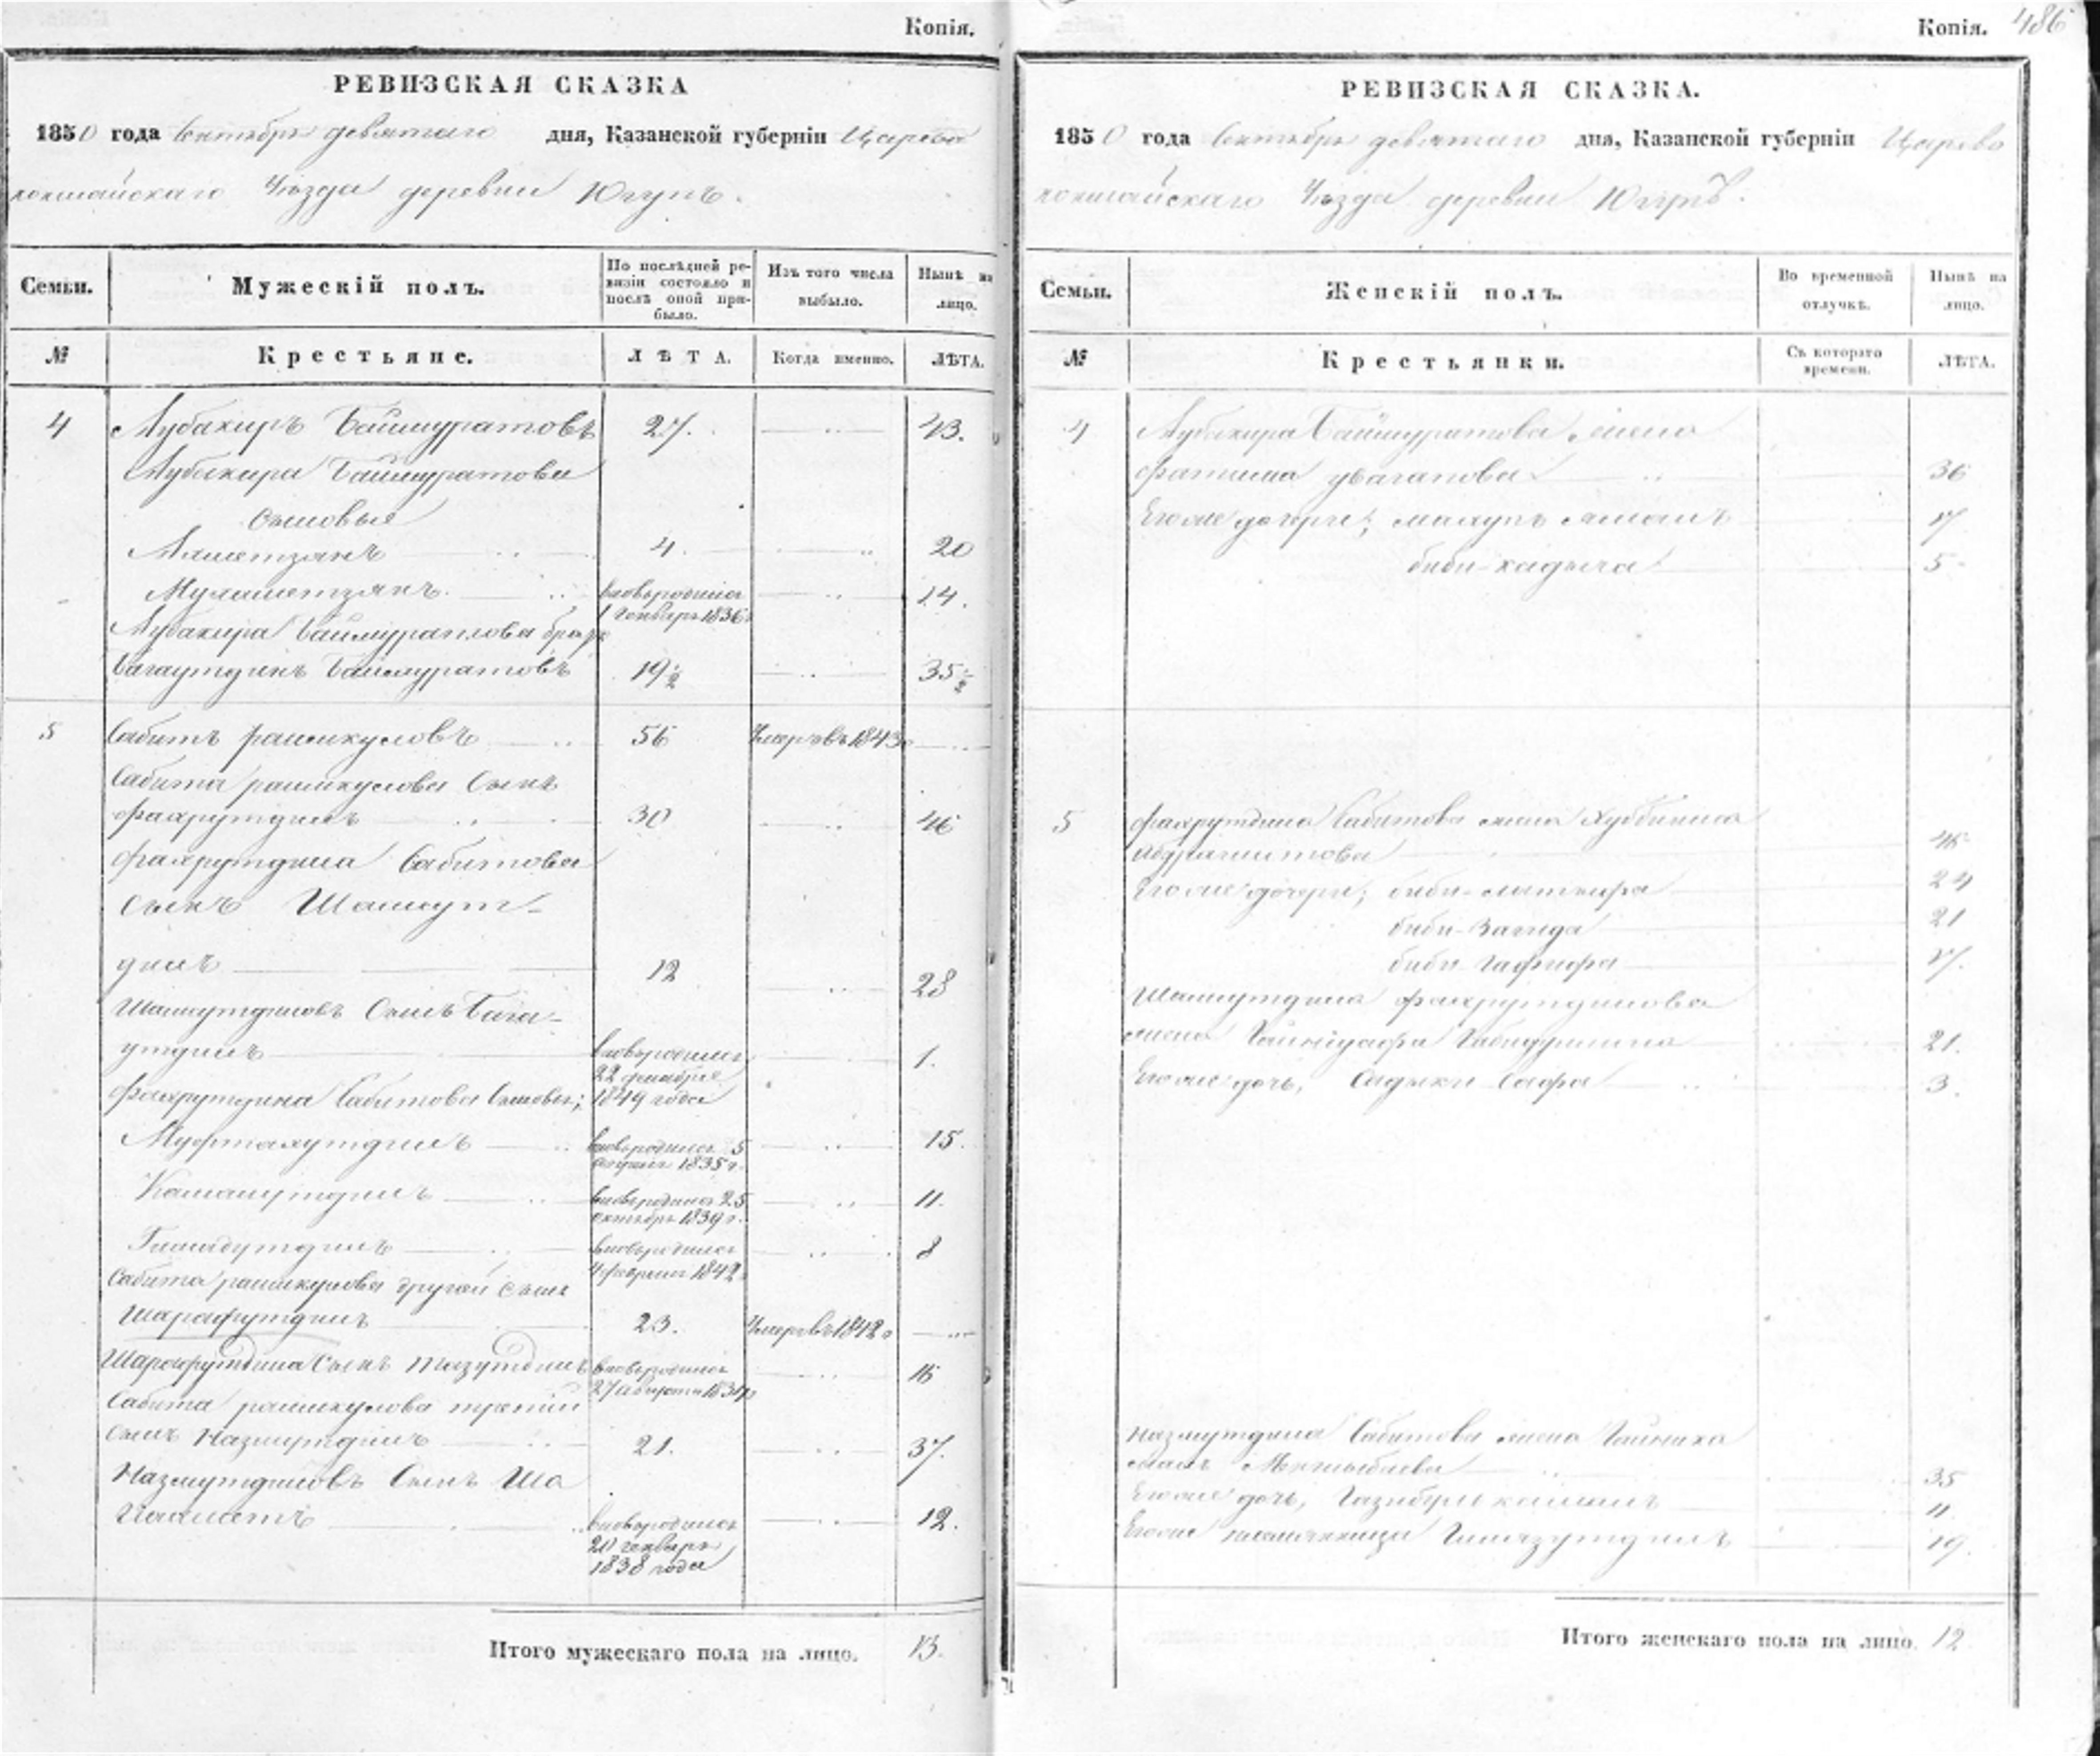 Копія.
РЕВИЗСКАЯ СКАЗКА
1850 года Сентября девятаго дня, Казанской губерніи Царево
кокшайскаго Уѣзда деревни Югупъ.
Семьи.
Мужескій полъ.
По послѣдней ре-
визіи состояло и
послѣ оной при-
было.
Изъ того числа
выбыло.
Нынѣ на
лицо.
№
Крестьяне.
ЛѢТА.
Когда именно.
ЛѢТА.
4 Абубакиръ Баймуратовъ 27. 43.
Абубакира Баймуратова
Сыновья
Ахметзянъ 4. 20
Мухаметзянъ. вновьродился 14.
1 Генваря 1836
Абубакира Баймуратова братъ
Багаутдинъ Баймуратовъ 19½ 35½
5 Сабитъ рашикуловъ 56 Умеръ въ 1843
Сабита рашикулова Сынъ
фахрутдинъ 30 46
фахрутдина Сабитова
Сынъ Шамсут-
динъ 12 28
Шамсутдиновъ Сынъ Бага-
утдинъ вновьродился 1.
22 1849 года
фахрутдина Сабитова Сыновья;
Муфтахутдинъ вновьродился 5 1835 г. 15.
Камалутдинъ вновьродился 25 октября 1839 г. 11.
Гимадутдинъ вновьродился 8
4 февраля 1842
Сабита рашикулова другой сынъ
Шарафутдинъ 23. Умеръ въ 1842
Шарафутдина Сынъ Тазутдинъ вновьродился 16
27 августа 1834
Сабита рашикулова третій
сынъ Назмутдинъ 21. 37.
Назмутдиновъ Сынъ Ша
Іахметъ вновьродился 12.
20 генваря
1838 года
Итого мужескаго пола на лицо. 13.
Копія. 486
РЕВИЗСКАЯ СКАЗКА.
1850 года Сентября девятаго дня, Казанской губерніи Царево
кокшайскаго Уѣзда деревни Югупъ.
Семьи.
Женскій полъ.
Во временной
отлучкѣ.
Нынѣ на
лицо.
№
Крестьянки.
Съ котораго
времени.
ЛѢТА.
4 Абубакира Баймуратова жена
фатима увагапова 36
Егоже дочери; 17
биби-хадыча 5
5 фахрутдина Сабитова жена Хуббиниса
Абдрашитова 46
Егоже дочери; биби-латыфа 24
биби-Загида 21
биби-Гафифа 17.
Шамсутдина фахрутдинова
жена Габидуллина 21.
Егоже дочь, Садыки-Сафа 3.
Назмутдина Сабитова жена
35
Егоже дочь, 11.
Егоже племянница 19.
Итого женскаго пола на лицо. 12